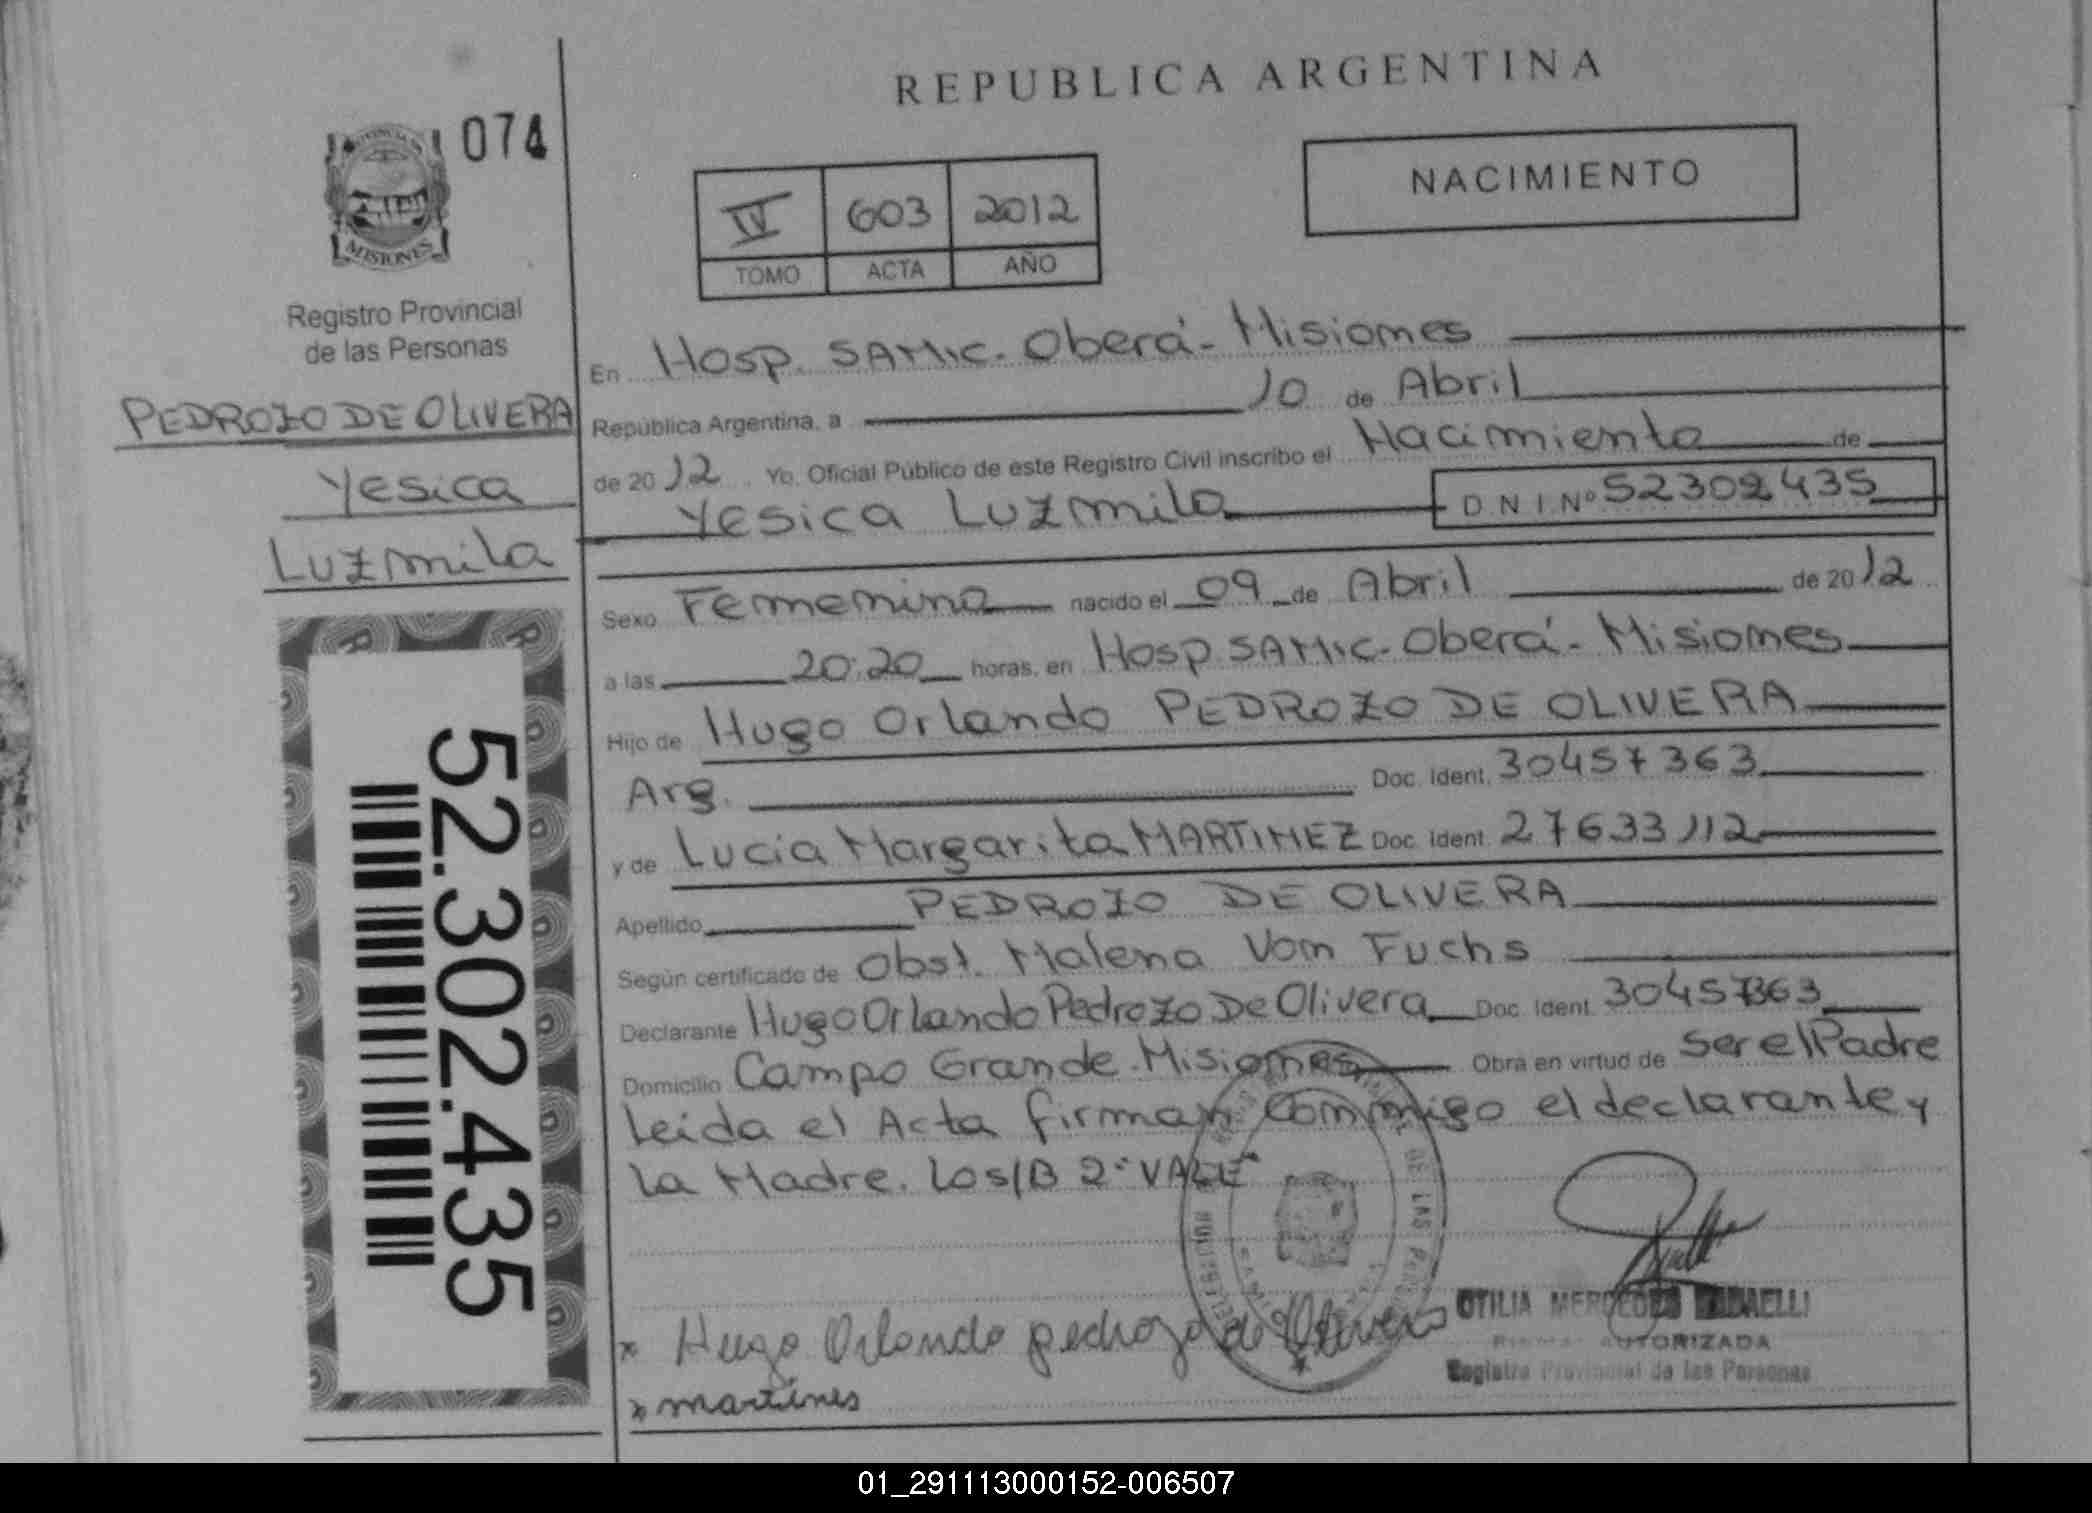 REPUBLICA ARGENTINA
074
NACIMIENTO
IV 603 2012
TOMO ACTA AÑO
MISIONES
Registro Provincial
de las Personas
PEDROZO DE OLIVERA
Yesica
Luzmila
52.302.435
En Hosp. SAMIC. Oberá - Misiones
República Argentina, a 10 de Abril
de 2012. Yo, Oficial Público de este Registro Civil inscribo el Nacimiento de
Yesica Luzmila D N I Nº 52302435
Sexo Femenino nacido el 09 de Abril de 2012
a las 20:20 horas, en Hosp SAMIC. Oberá - Misiones
Hijo de Hugo Orlando PEDROZO DE OLIVERA
Arg. Doc. Ident. 30457363
y de Lucia Margarita MARTINEZ Doc. Ident. 27633112
Apellido PEDROZO DE OLIVERA
Según certificado de Obst. Malena Von Fuchs
Declarante Hugo Orlando Pedrozo De Olivera Doc. Ident. 30457363
Domicilio Campo Grande - Misiones Obra en virtud de ser el Padre
leida el Acta firman conmigo el declarante y
la Madre. Los/B 2º VALE
OTILIA MERCEDES
FIRMA AUTORIZADA
Registro Provincial de las Personas
x Hugo Orlando pedrozo de Olivera
x martines
01_291113000152-006507